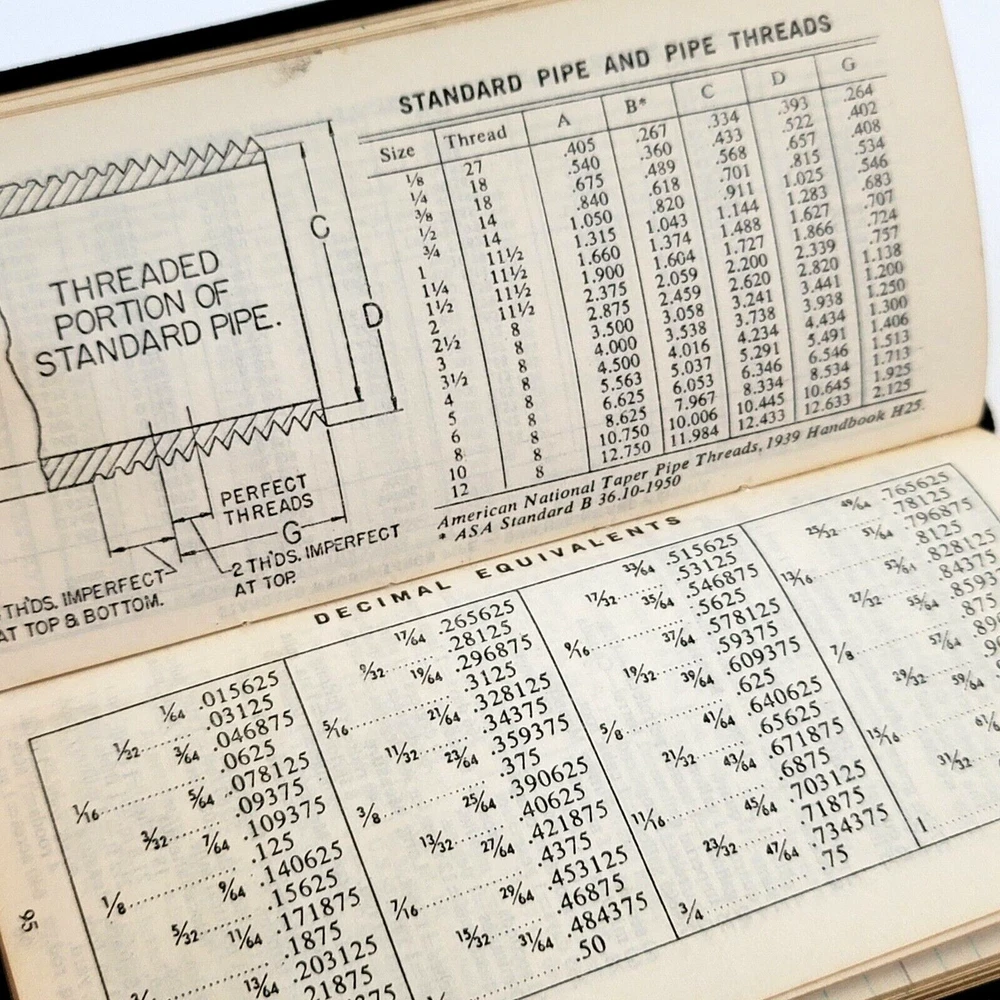 STANDARD PIPE AND PIPE THREADS
Size Thread A B* C D G
1/8 27 .405 .267 .334 .393 .264
1/4 18 .540 .360 .433 .522 .402
3/8 18 .675 .489 .568 .657 .408
1/2 14 .840 .618 .701 .815 .534
3/4 14 1.050 .820 .911 1.025 .546
1 11½ 1.315 1.043 1.144 1.283 .683
1¼ 11½ 1.660 1.374 1.488 1.627 .707
1½ 11½ 1.900 1.604 1.727 1.866 .724
2 11½ 2.375 2.059 2.200 2.339 .757
2½ 8 2.875 2.459 2.620 2.820 1.138
3 8 3.500 3.058 3.241 3.441 1.200
3½ 8 4.000 3.538 3.738 3.938 1.250
4 8 4.500 4.016 4.234 4.434 1.300
5 8 5.563 5.037 5.291 5.491 1.406
6 8 6.625 6.053 6.346 6.546 1.513
8 8 8.625 7.967 8.334 8.534 1.713
10 8 10.750 10.006 10.445 10.645 1.925
12 8 12.750 11.984 12.433 12.633 2.125
American National Taper Pipe Threads, 1939 Handbook H25.
* ASA Standard B 36.10-1950
THREADED
PORTION OF
STANDARD PIPE.
C
D
PERFECT
THREADS
G
2 TH'DS. IMPERFECT
AT TOP.
TH'DS. IMPERFECT
AT TOP & BOTTOM.
DECIMAL EQUIVALENTS
1/64 .015625
1/32 ...... .03125
3/64 .046875
1/16 ............ .0625
5/64 .078125
3/32 ...... .09375
7/64 .109375
1/8 ............ .125
9/64 .140625
5/32 ...... .15625
11/64 .171875
.1875
13/64 .203125
.21875
17/64 .265625
9/32 ...... .28125
19/64 .296875
5/16 ............ .3125
21/64 .328125
11/32 ...... .34375
23/64 .359375
3/8 ............ .375
25/64 .390625
13/32 ...... .40625
27/64 .421875
7/16 ............ .4375
29/64 .453125
15/32 ...... .46875
31/64 .484375
.50
33/64 .515625
17/32 ...... .53125
35/64 .546875
9/16 ............ .5625
37/64 .578125
19/32 ...... .59375
39/64 .609375
5/8 ............ .625
41/64 .640625
21/32 ...... .65625
43/64 .671875
11/16 ............ .6875
45/64 .703125
23/32 ...... .71875
47/64 .734375
3/4 ............ .75
49/64 .765625
25/32 ...... .78125
51/64 .796875
13/16 ............ .8125
53/64 .828125
27/32 ...... .84375
55/64 .8593
7/8 ............ .875
57/64 .89
29/32 ......
59/64
15/16 ............
61/64
31/32 ......
1 ............
95